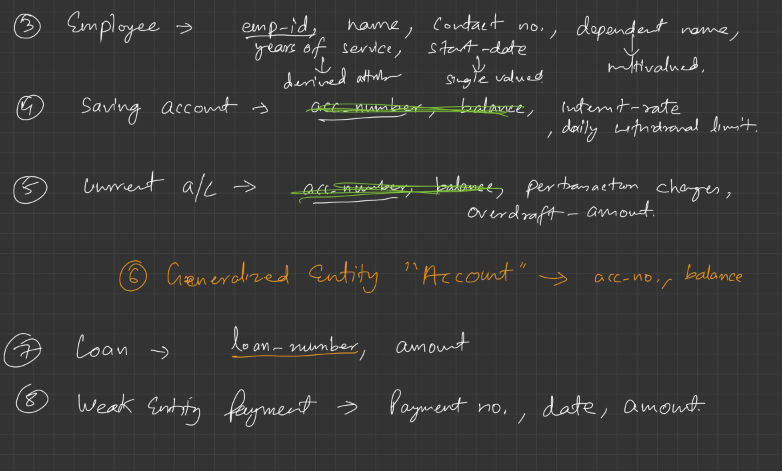 ③ Employee → emp-id, name, contact no., dependent name,
years of service, start-date
derived attribu single valued multivalued.
④ Saving account → acc-number, balance, interest-rate
, daily withdrawal limit.
⑤ Current a/c → acc-number, balance, pertransaction charges,
overdraft-amount.
⑥ Generalized Entity "Account" → acc-no., balance
⑦ Loan → loan-number, amount
⑧ Weak Entity Payment → Payment no., date, amount.